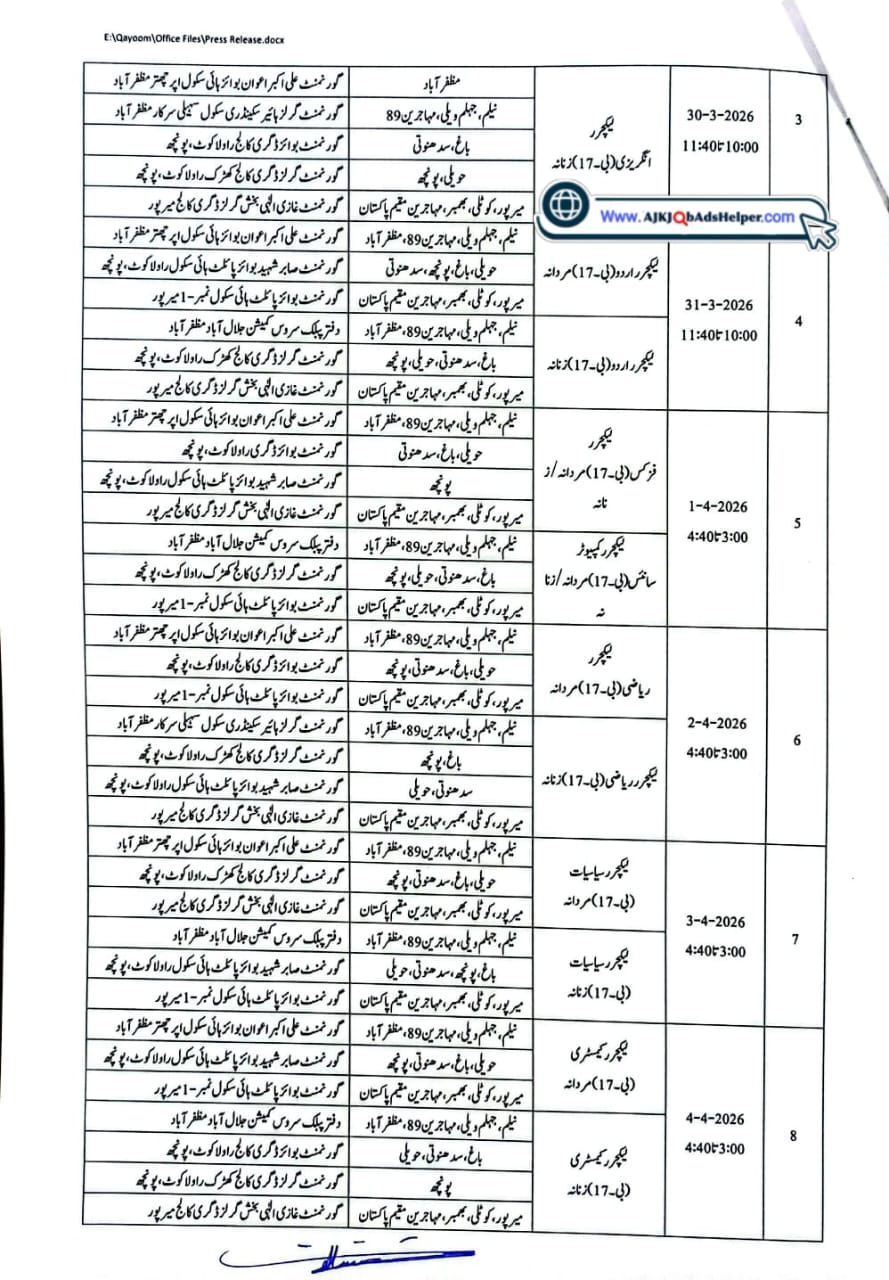 E:\Qayoom\Office Files\Press Release.docx
Www. AJKJQbAdsHelper.com
3
30-3-2026
10:00تا11:40
لیکچرر
انگریزی(بی۔17)زنانہ
مظفرآباد
گورنمنٹ علی اکبر اعوان بوائز ہائی سکول اپر چھتر مظفرآباد
نیلم، جہلم ویلی، مہاجرین89
گورنمنٹ گرلز ہائیر سکینڈری سکول سہیلی سرکار مظفرآباد
باغ، سدھنوتی
گورنمنٹ بوائز ڈگری کالج راولاکوٹ، پونچھ
حویلی، پونچھ
گورنمنٹ گرلز ڈگری کالج کھڑک راولاکوٹ، پونچھ
میرپور، کوٹلی، بھمبر، مہاجرین مقیم پاکستان
گورنمنٹ غازی الٰہی بخش گرلز ڈگری کالج میرپور
4
31-3-2026
10:00تا11:40
لیکچرر اردو(بی۔17)مردانہ
نیلم، جہلم ویلی، مہاجرین89، مظفرآباد
گورنمنٹ علی اکبر اعوان بوائز ہائی سکول اپر چھتر مظفرآباد
حویلی، باغ، پونچھ، سدھنوتی
گورنمنٹ صابر شہید بوائز پائلٹ ہائی سکول راولاکوٹ، پونچھ
میرپور، کوٹلی، بھمبر، مہاجرین مقیم پاکستان
گورنمنٹ بوائز پائلٹ ہائی سکول نمبر-1 میرپور
لیکچرر اردو(بی۔17)زنانہ
نیلم، جہلم ویلی، مہاجرین89، مظفرآباد
دفتر پبلک سروس کمیشن جلال آباد مظفرآباد
باغ، سدھنوتی، حویلی، پونچھ
گورنمنٹ گرلز ڈگری کالج کھڑک راولاکوٹ، پونچھ
میرپور، کوٹلی، بھمبر، مہاجرین مقیم پاکستان
گورنمنٹ غازی الٰہی بخش گرلز ڈگری کالج میرپور
5
1-4-2026
3:00تا4:40
لیکچرر
فزکس(بی۔17)مردانہ/ز
نانہ
نیلم، جہلم ویلی، مہاجرین89، مظفرآباد
گورنمنٹ علی اکبر اعوان بوائز ہائی سکول اپر چھتر مظفرآباد
حویلی، باغ، سدھنوتی
گورنمنٹ بوائز ڈگری راولاکوٹ، پونچھ
پونچھ
گورنمنٹ صابر شہید بوائز پائلٹ ہائی سکول راولاکوٹ، پونچھ
میرپور، کوٹلی، بھمبر، مہاجرین مقیم پاکستان
گورنمنٹ غازی الٰہی بخش گرلز ڈگری کالج میرپور
لیکچرر کمپیوٹر
سائنس(بی۔17)مردانہ/زنا
نہ
نیلم، جہلم ویلی، مہاجرین89، مظفرآباد
دفتر پبلک سروس کمیشن جلال آباد مظفرآباد
باغ، سدھنوتی، حویلی، پونچھ
گورنمنٹ گرلز ڈگری کالج کھڑک راولاکوٹ، پونچھ
میرپور، کوٹلی، بھمبر، مہاجرین مقیم پاکستان
گورنمنٹ بوائز پائلٹ ہائی سکول نمبر-1 میرپور
6
2-4-2026
3:00تا4:40
لیکچرر
ریاضی(بی۔17)مردانہ
نیلم، جہلم ویلی، مہاجرین89، مظفرآباد
گورنمنٹ علی اکبر اعوان بوائز ہائی سکول اپر چھتر مظفرآباد
حویلی، باغ، سدھنوتی، پونچھ
گورنمنٹ بوائز ڈگری کالج راولاکوٹ، پونچھ
میرپور، کوٹلی، بھمبر، مہاجرین مقیم پاکستان
گورنمنٹ بوائز پائلٹ ہائی سکول نمبر-1 میرپور
لیکچرر ریاضی(بی۔17)زنانہ
نیلم، جہلم ویلی، مہاجرین89، مظفرآباد
گورنمنٹ گرلز ہائیر سکینڈری سکول سہیلی سرکار مظفرآباد
باغ، پونچھ
گورنمنٹ گرلز ڈگری کالج کھڑک راولاکوٹ، پونچھ
سدھنوتی، حویلی
گورنمنٹ صابر شہید بوائز پائلٹ ہائی سکول راولاکوٹ، پونچھ
میرپور، کوٹلی، بھمبر، مہاجرین مقیم پاکستان
گورنمنٹ غازی الٰہی بخش گرلز ڈگری کالج میرپور
7
3-4-2026
3:00تا4:40
لیکچرر سیاسیات
(بی۔17)مردانہ
نیلم، جہلم ویلی، مہاجرین89، مظفرآباد
گورنمنٹ علی اکبر اعوان بوائز ہائی سکول اپر چھتر مظفرآباد
حویلی، باغ، سدھنوتی، پونچھ
گورنمنٹ گرلز ڈگری کالج کھڑک راولاکوٹ، پونچھ
میرپور، کوٹلی، بھمبر، مہاجرین مقیم پاکستان
گورنمنٹ غازی الٰہی بخش گرلز ڈگری کالج میرپور
لیکچرر سیاسیات
(بی۔17)زنانہ
نیلم، جہلم ویلی، مہاجرین89، مظفرآباد
دفتر پبلک سروس کمیشن جلال آباد مظفرآباد
باغ، پونچھ، سدھنوتی، حویلی
گورنمنٹ صابر شہید بوائز پائلٹ ہائی سکول راولاکوٹ، پونچھ
میرپور، کوٹلی، بھمبر، مہاجرین مقیم پاکستان
گورنمنٹ بوائز پائلٹ ہائی سکول نمبر-1 میرپور
8
4-4-2026
3:00تا4:40
لیکچرر کیمسٹری
(بی۔17)مردانہ
نیلم، جہلم ویلی، مہاجرین89، مظفرآباد
گورنمنٹ علی اکبر اعوان بوائز ہائی سکول اپر چھتر مظفرآباد
حویلی، باغ، سدھنوتی، پونچھ
گورنمنٹ صابر شہید بوائز پائلٹ ہائی سکول راولاکوٹ، پونچھ
میرپور، کوٹلی، بھمبر، مہاجرین مقیم پاکستان
گورنمنٹ بوائز پائلٹ ہائی سکول نمبر-1 میرپور
لیکچرر کیمسٹری
(بی۔17)زنانہ
نیلم، جہلم ویلی، مہاجرین89، مظفرآباد
دفتر پبلک سروس کمیشن جلال آباد مظفرآباد
باغ، سدھنوتی، حویلی
گورنمنٹ بوائز ڈگری کالج راولاکوٹ، پونچھ
پونچھ
گورنمنٹ گرلز ڈگری کالج کھڑک راولاکوٹ، پونچھ
میرپور، کوٹلی، بھمبر، مہاجرین مقیم پاکستان
گورنمنٹ غازی الٰہی بخش گرلز ڈگری کالج میرپور